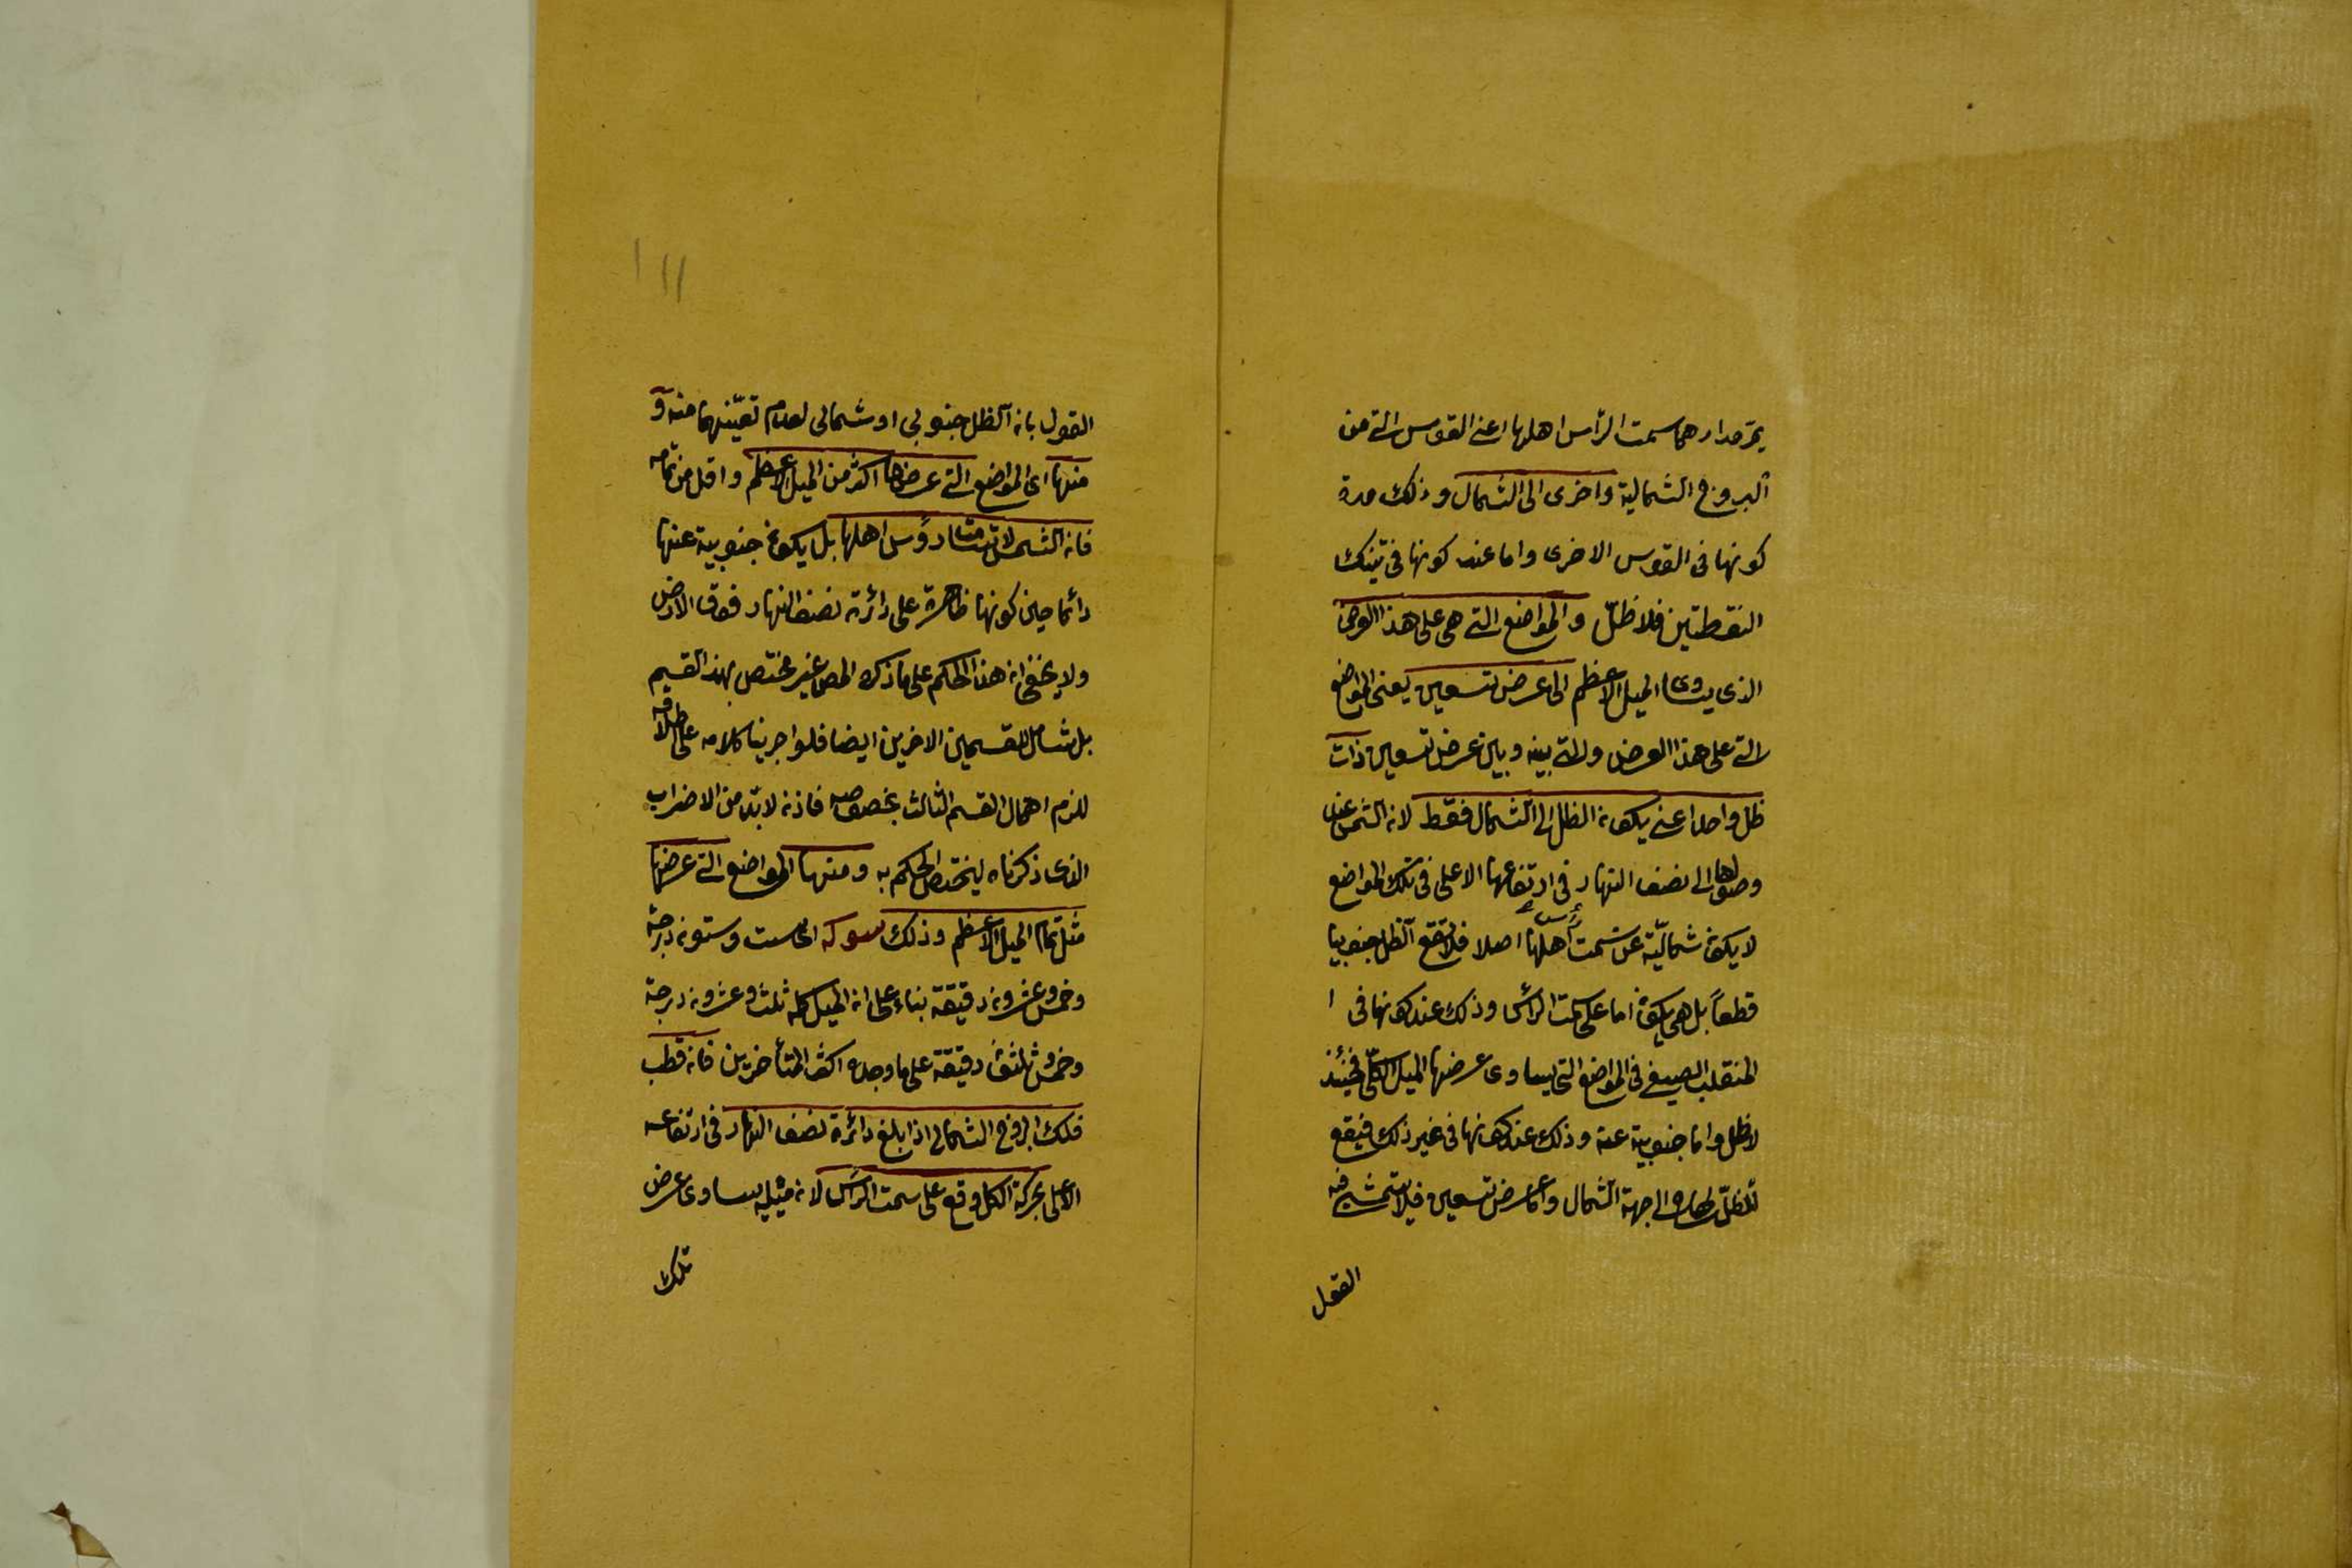 يمرّ مدارهما سمت الرأس اهلها اعنى القوس التى من
البروج الشمالية واخرى الى الشمال وذلك مدة
كونها فى القوس الاخرى واما عند كونها فى تينك
النقطتين فلا ظلّ والمواضع التى هى على هذا العرض
الذى يساوى الميل الاعظم الى عرض تسعين يعنى المواضع
التى على هذا العرض والتى بينه وبين عرض تسعين ذات
ظل واحد اعنى يكون الظل الى الشمال فقط لان الشمس عند
وصولها الى نصف النهار فى ارتفاعها الاعلى فى تلك المواضع
لا يكون شماليّة عن سمت رأس اهلها اصلا فلا تقع الظل جنوبيا
قطعاً بل هى يكون اما على سمت الرأس وذلك عند كونها فى ا
المنقلب الصيفى فى المواضع التى يساوى عرضها الميل الكلّى فحينئذ
لا ظل واما جنوبية عنه وذلك عند كونها فى غير ذلك فيقع
الظلّ الى جهة الشمال واما عرض تسعين فلا يتمشى فيه
القول
١١١
القول بان الظل جنوبى او شمالى لعدم تعيّنهما منه و
منها اى المواضع التى عرضها اكثر من الميل الاعظم واقل من تمامه
فان الشمس لا تسامت رؤس اهلها بل يكون جنوبية عنها
دائما حين كونها ظاهرة على دائرة نصف النهار فوق الارض
ولا يخفى ان هذا الحكم على ما ذكره المص غير مختص بهذا القسيم
بل شامل للقسمين الاخرين ايضا فلو اجرينا كلامه على اطلاقه
للزم اهمال القسم الثالث بخصوصه فاذن لا بدّ من الاضراب
الذى ذكرناه ليختص الحكم به ومنها المواضع التى عرضها
مثل تمام الميل الاعظم وذلك سوكه اى ست وستون درجة
وخمس وعشرون دقيقة بناء على ان الميل كله ثلث وعشرون درجة
وخمس وثلثون دقيقة على ما وجده اكثر المتأخرين فان قطب
فلك البروج الشمالى اذا بلغ دائرة نصف النهار فى ارتفاعه
الاعلى بحركة الكل وقع على سمت الرأس لان ميله يساوى عرض
تلك